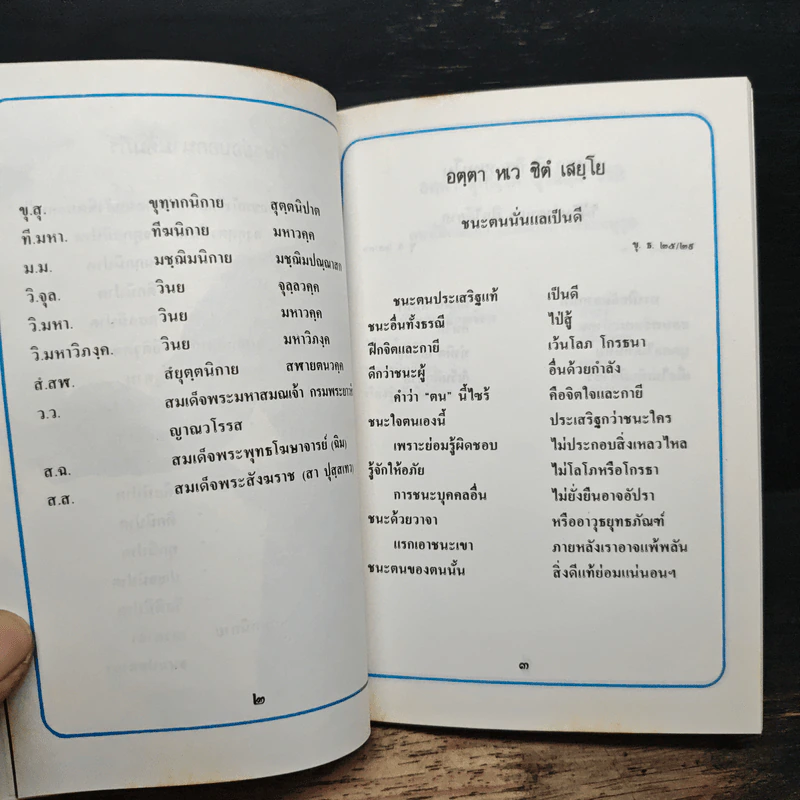 ขุ.สุ. ขุทฺทกนิกาย สุตฺตนิปาต
ที.มหา. ทีฆนิกาย มหาวคฺค
ม.ม. มชฺฌิมนิกาย มชฺฌิมปณฺณาสก
วิ.จุล. วินย จุลฺลวคฺค
วิ.มหา. วินย มหาวคฺค
วิ.มหาวิภงฺค. วินย มหาวิภงฺค
สํ.สฬ. สํยุตฺตนิกาย สฬายตนวคฺค
ว.ว. สมเด็จพระมหาสมณเจ้า กรมพระยาวชิร
ญาณวโรรส
ส.ฉ. สมเด็จพระพุทธโฆษาจารย์ (ฉิม)
ส.ส. สมเด็จพระสังฆราช (สา ปุสฺสเทว)
๒
อตฺตา หเว ชิตํ เสยฺโย
ชนะตนนั่นแลเป็นดี
ขุ. ธ. ๒๕/๒๙
ชนะตนประเสริฐแท้ เป็นดี
ชนะอื่นทั้งธรณี ไป่สู้
ฝึกจิตและกายี เว้นโลภ โกรธนา
ดีกว่าชนะผู้ อื่นด้วยกำลัง
คำว่า “ตน” นี้ไซร้ คือจิตใจและกายี
ชนะใจตนเองนี้ ประเสริฐกว่าชนะใคร
เพราะย่อมรู้ผิดชอบ ไม่ประกอบสิ่งเหลวไหล
รู้จักให้อภัย ไม่โลโภหรือโกรธา
การชนะบุคคลอื่น ไม่ยั่งยืนอาจอัปรา
ชนะด้วยวาจา หรืออาวุธยุทธภัณฑ์
แรกเอาชนะเขา ภายหลังเราอาจแพ้พลัน
ชนะตนของตนนั้น สิ่งดีแท้ย่อมแน่นอนฯ
๓